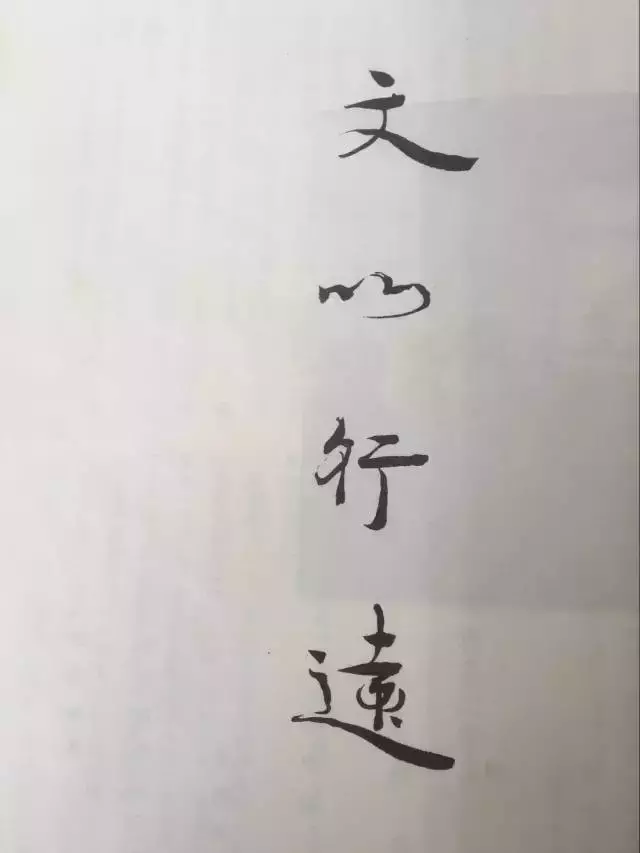 文以行遠